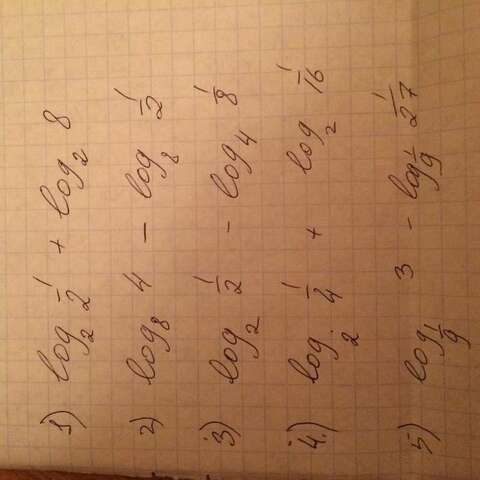 1) log₂ 1/2 + log₂ 8
2) log₈ 4 - log₈ 1/2
3) log₂ 1/2 - log₄ 1/8
4.) log₂ 1/4 + log₂ 1/16
5) log_{1/9} 3 - log_{1/9} 1/27